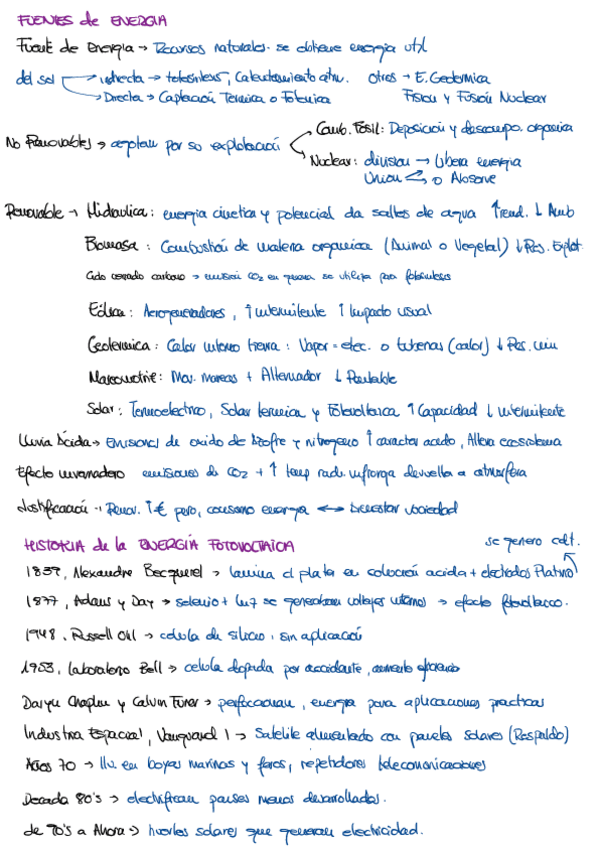 FUENTES de ENERGIA
Fuente de Energia → Recursos naturales. se obtiene energia util
del sol → indirecta → fotosintesis, Calentamiento atm. Otros → E. Geotermica
→ Directa → Captación Termica o Fotonica Fision y Fusión Nuclear
Comb. Fosil: Deposicion y descompo. organica
No Renovables → agotan por su explotación
Nuclear: division → Libera energia
Union → o Absorve
Renovable → Hidraulica: energia cinetica y potencial da saltos de agua ↑rend. ↓ Amb
Biomasa: Combustión de materia organica (Animal o Vegetal) ↓Res. Explot
Ciclo cerrado carbono → emision CO2 en quema se utiliza para fotosintesis
Eólica: Aerogeneradores, ↑ intermitente ↑ Impacto visual
Geotermica: Calor interno tierra: Vapor = elec. o tuberias (calor) ↓ Res.
Mareomotrie: Mov. mareas + Alternador ↓ Rentable
Solar: Termoelectrico, Solar termica y Fotovoltaica ↑ Capacidad ↓ intermitente
Lluvia Ácida → Emisiones de oxido de azofre y nitrogeno ↑ caracter acido, Altera ecosistema
Efecto invernadero emisiones de CO2 + ↑ temp radi. infrarroja devuelta a atmosfera
Justificación → Renov. ↑€ pero, consumo energia ↔ bienestar sociedad
HISTORIA de la ENERGÍA FOTOVOLTAICA se genero
1839, Alexandre Becquerel → lamina d plata en solución acida + electrodos Platino
1877, Adams y Day → selenio + luz se generaban voltajes internos → efecto fotovoltaico.
1948, Russell Ohl → celula de silicio, sin aplicación
1953, Laboratorio Bell → celula dopada por accidente, aumento eficiencia
Daryn Chaplin y Calvin Fuller → perfeccionan, energia para aplicaciones practicas
Industria Espacial, Vanguard 1 → Satelite alimentado con paneles solares (Respaldo)
Años 70 → Ilu. en boyas marinas y faros, repetidores telecomunicaciones
Decada 80's → electrifican paises menos desarrollados.
de 90's a Ahora → huertos solares que generan electricidad.